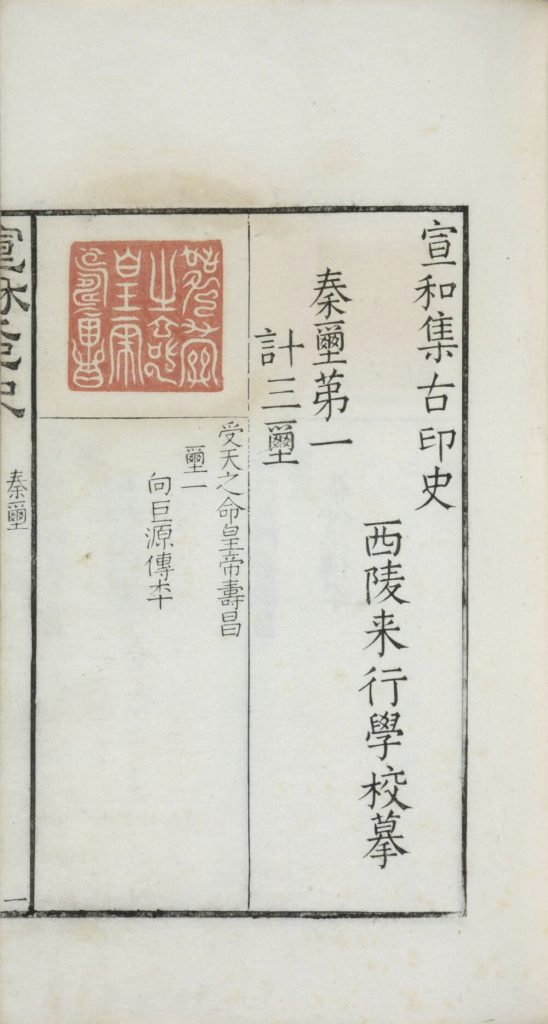 宣和集古印史
西陵来行學校摹
秦璽第一
計三璽
受天之命皇帝壽昌
受天之命皇帝壽昌
璽一
向巨源傳本
秦璽
一